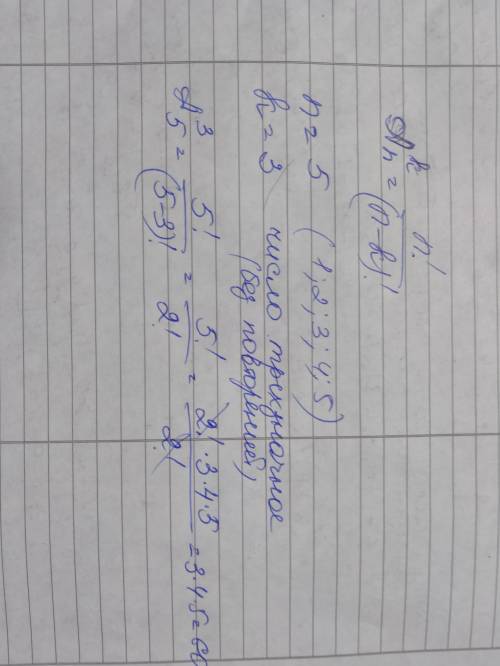 Aₙᵏ = n! / (n-k)!
n = 5 (1; 2; 3; 4; 5)
k = 3 число трехзначное
(без повторений)
A₅³ = 5! / (5-3)! = 5! / 2! = 2! · 3 · 4 · 5 / 2! = 3 · 4 · 5 = 60